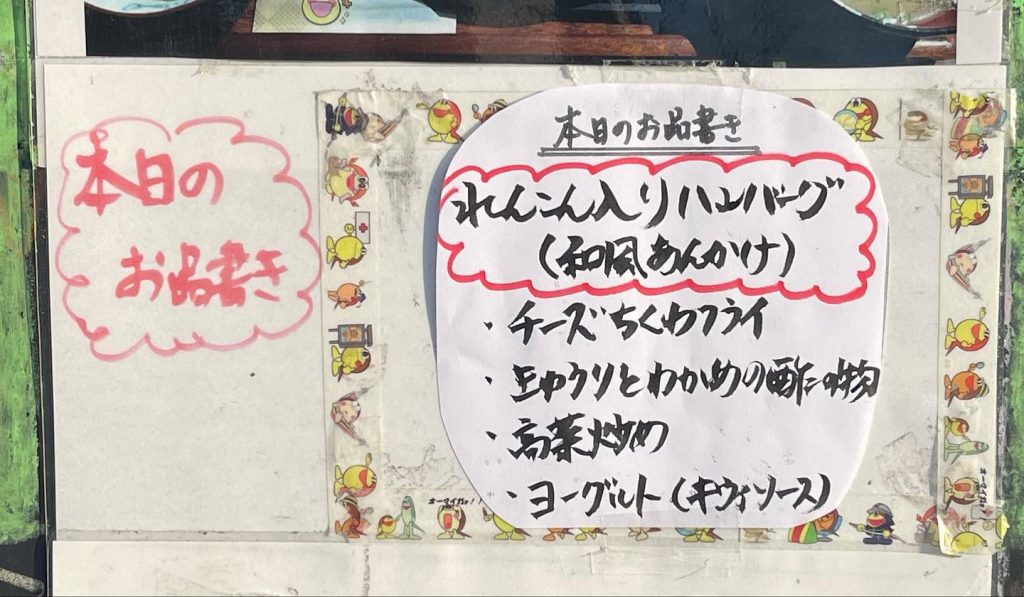 本日の
お品書き
本日のお品書き
れんこん入りハンバーグ
(和風あんかけ)
・チーズちくわフライ
・きゅうりとわかめの酢の物
・高菜炒め
・ヨーグルト(キウイソース)
オーマイガッ!!